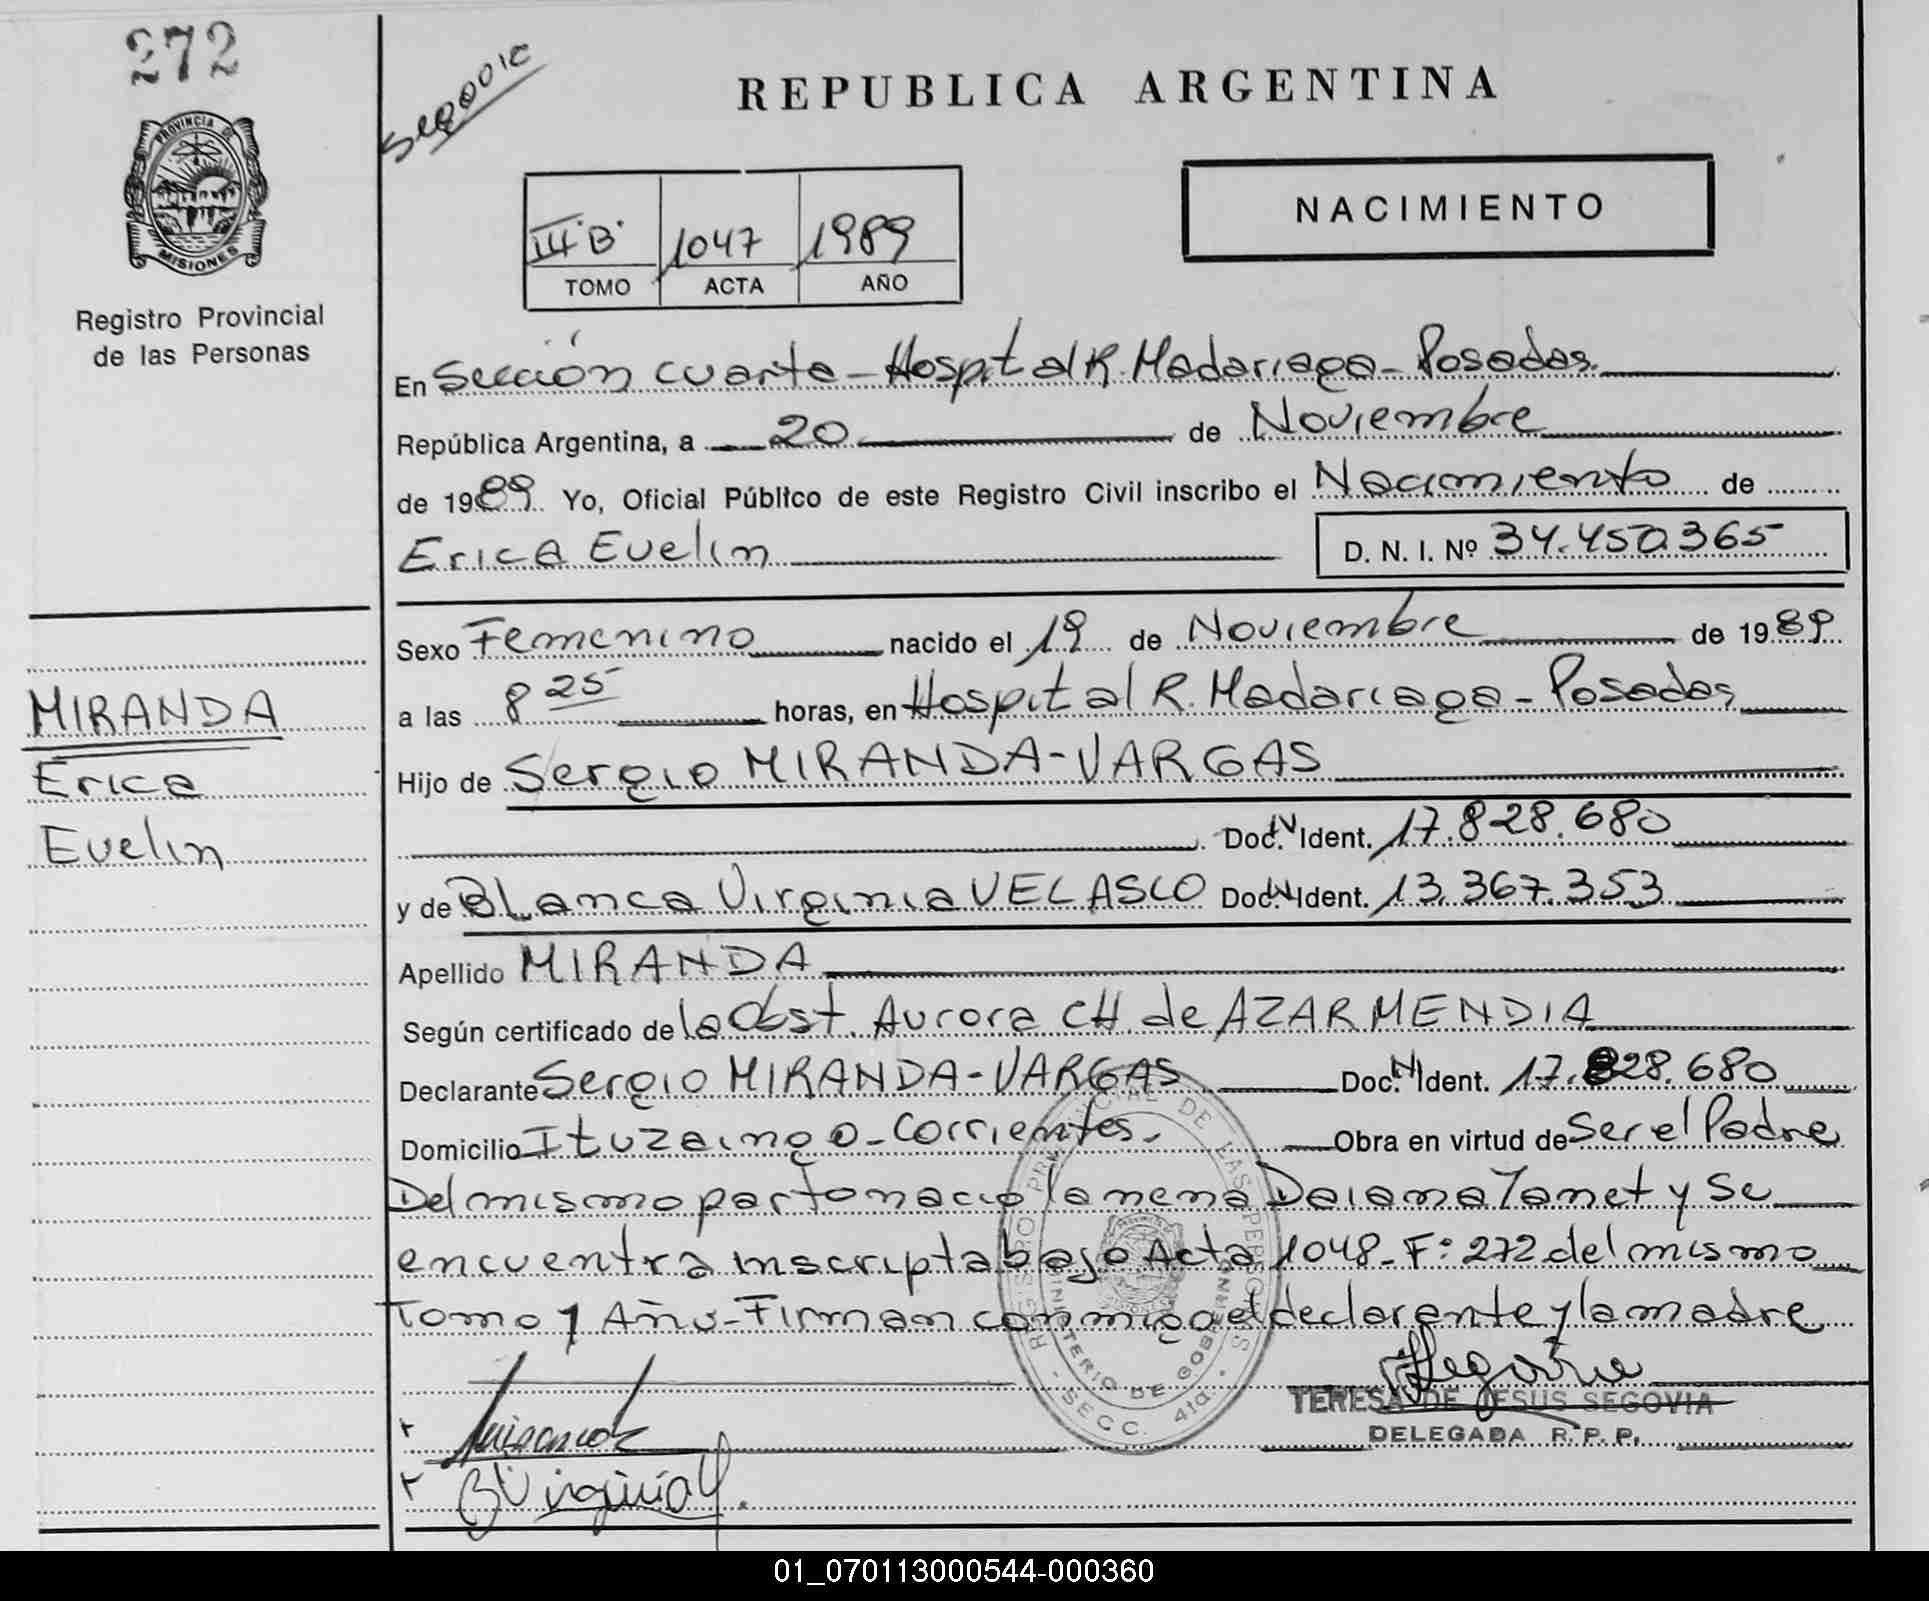 272
PROVINCIA DE
MISIONES
Registro Provincial
de las Personas
MIRANDA
Erica
Evelin
Segovia
REPUBLICA ARGENTINA
III·B· 1047 1989
TOMO ACTA AÑO
NACIMIENTO
En Sección cuarta - Hospital R. Madariaga - Posadas.
República Argentina, a 20 de Noviembre
de 1989 Yo, Oficial Público de este Registro Civil inscribo el Nacimiento de
Erica Evelin D. N. I. Nº 34.450.365
Sexo Femenino nacido el 19 de Noviembre de 1989
a las 8 25 horas, en Hospital R. Madariaga - Posadas
Hijo de Sergio MIRANDA-VARGAS
Doc. N Ident. 17.828.680
y de Blanca Virginia VELASCO Doc. N Ident. 13.367.353
Apellido MIRANDA
Según certificado de la Obst. Aurora CH de AZARMENDIA
Declarante Sergio MIRANDA-VARGAS Doc. N Ident. 17.828.680
Domicilio Ituzaingo - Corrientes. Obra en virtud de Ser el Padre
Del mismo parto nacio la nena Daiana Yanet y se
encuentra inscripta bajo Acta 1048 - F: 272 del mismo
Tomo y Año - Firman conmigo el declarante y la madre
REGISTRO PROVINCIAL DE LAS PERSONAS
MINISTERIO DE GOBIERNO
- SECC. 4ta. -
TERESA DE JESUS SEGOVIA
DELEGADA R. P. P.
B Virginia V
01_070113000544-000360